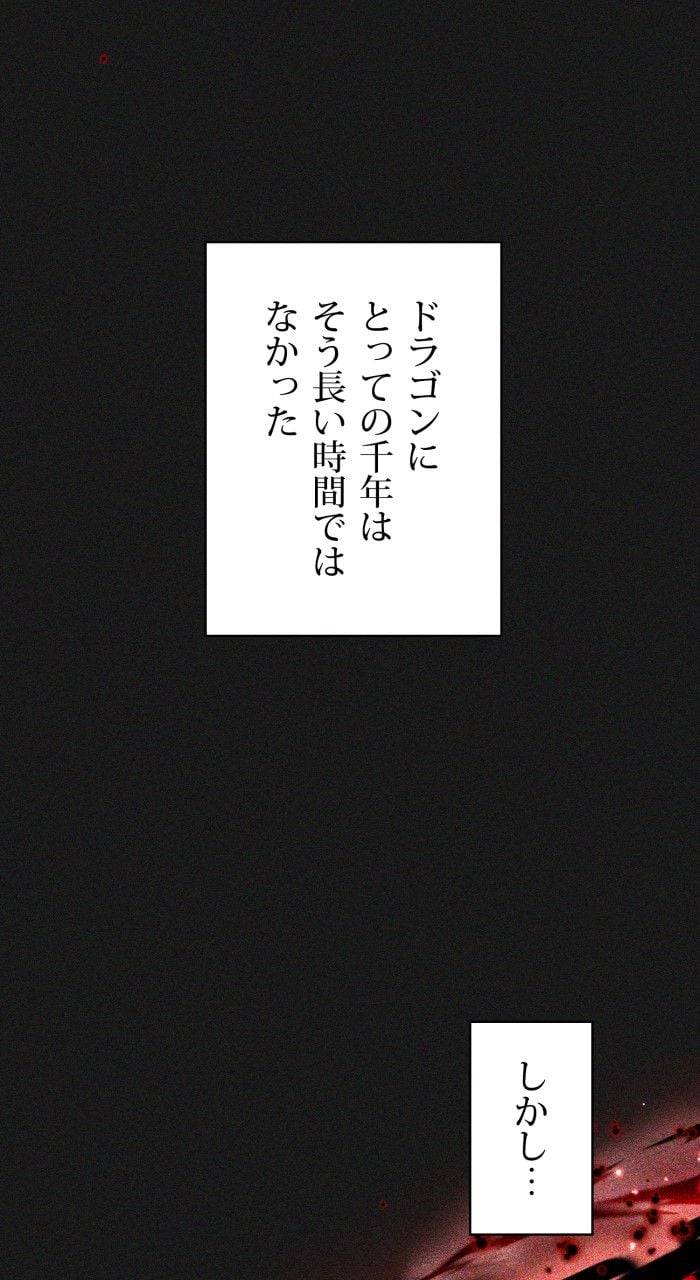 ドラゴンに
とっての千年は
そう長い時間では
なかった
しかし…